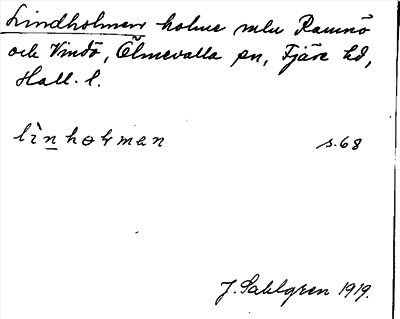 Lindholmen holme mlu Ramnö
och Vindö, Ölmevalla sn, Fjäre hd,
Hall. l.
lìnhɵlman s. 68
J. Sahlgren 1919.